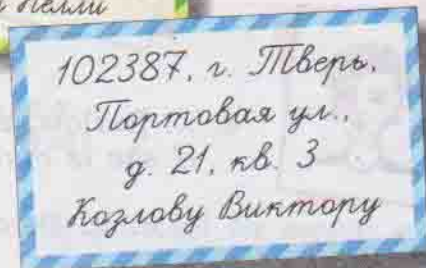 Нелли
102387, г. Тверь,
Портовая ул.,
д. 21, кв. 3
Козлову Виктору